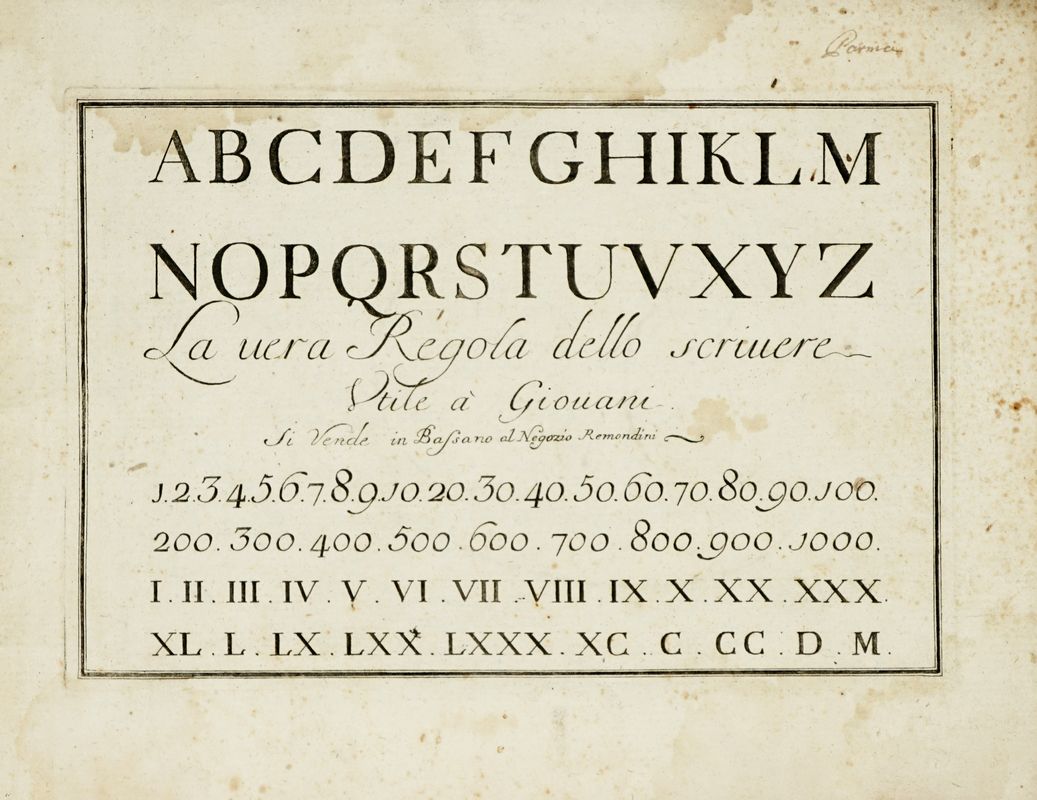 Parma
ABCDEFGHIKLM
NOPQRSTUVXYZ
La uera Regola dello scriuere
Vtile à Giouani.
Si Vende in Baſsano al Negozio Remondini
1.2.3.4.5.6.7.8.9.10.20.30.40.50.60.70.80.90.100.
200.300.400.500.600.700.800.900.1000.
I.II.III.IV.V.VI.VII.VIII.IX.X.XX.XXX.
XL.L.LX.LXX.LXXX.XC.C.CC.D.M.